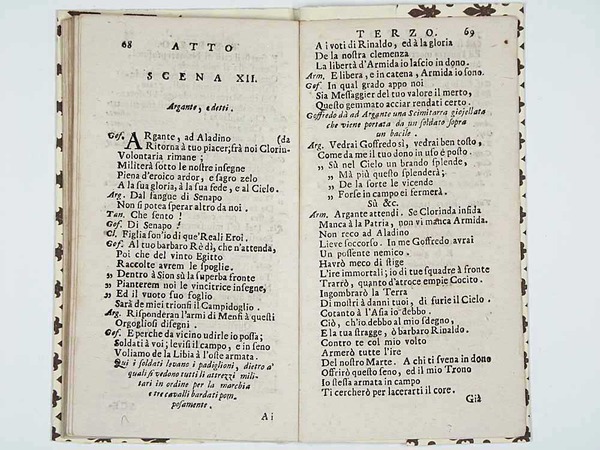 68 ATTO
SCENA XII.
Argante, e detti.
Gof. ARgante, ad Aladino (da
Ritorna à tuo piacer; frà noi Clorin-
Volontaria rimane;
Militerà sotto le nostre insegne
Piena d'eroico ardor, e sagro zelo
A la sua gloria, à la sua fede, e al Cielo.
Arg. Dal sangue di Senapo
Non si potea sperar altro da noi.
Tan. Che sento!
Gof. Di Senapo!
Cl. Figlia son'io di que'Reali Eroi.
Gof. Al tuo barbaro Rè dì, che n'attenda,
Poi che del vinto Egitto
Raccolte avrem le spoglie.
„ Dentro à Sion sù la superba fronte
„ Pianterem noi le vincitrice insegne,
„ Ed il vuoto suo foglio
Sarà de miei trionfi il Campidoglio.
Arg. Risponderan l'armi di Menfi à questi
Orgogliosi disegni.
Gof. E perche da vicino udirle io possa;
Soldati à voi; levisi il campo, e in seno
Voliamo de la Libia à l'oste armata.
Qui i soldati levano i padiglioni, dietro a'
quali si vedono tutti li attrezzi mili-
tari in ordine per la marchia
e tre cavalli bardati pom-
posamente.
Ai
TERZO. 69
A i voti di Rinaldo, ed à la gloria
De la nostra clemenza
La libertà d'Armida io lascio in dono.
Arm. E libera, e in catena, Armida io sono.
Gof. In qual grado appo noi
Sia Messaggier del tuo valore il merto,
Questo gemmato acciar rendati certo.
Goffredo dà ad Argante una Scimitarra giojellata
che viene portata da un soldato sopra
un bacile.
Arg. Vedrai Goffredo sì, vedrai ben tosto,
Come da me il tuo dono in uso è posto.
„ Sù nel Cielo un brando splende,
„ Mà più questo splenderà;
„ De la sorte le vicende
„ Forse in campo ei fermerà.
Sù &c.
Arm. Argante attendi. Se Clorinda infida
Manca à la Patria, non vi manca Armida.
Non reco ad Aladino
Lieve soccorso. In me Goffredo avrai
Un possente nemico.
Havrò meco di stige
L'ire immortali; io di tue squadre à fronte
Trarrò, quanto d'atroce empie Cocito.
Ingombrarò la Terra
Di mostri à danni tuoi, di furie il Cielo.
Cotanto à l'Asia io debbo.
Ciò, ch'io debbo al mio sdegno,
E la tua stragge, ò barbaro Rinaldo.
Contro te col mio volto
Armerò tutte l'ire
Del nostro Marte. A chi ti svena in dono
Offrirò questo seno, ed il mio Trono
Io stessa armata in campo
Ti cercherò per lacerarti il core.
Già